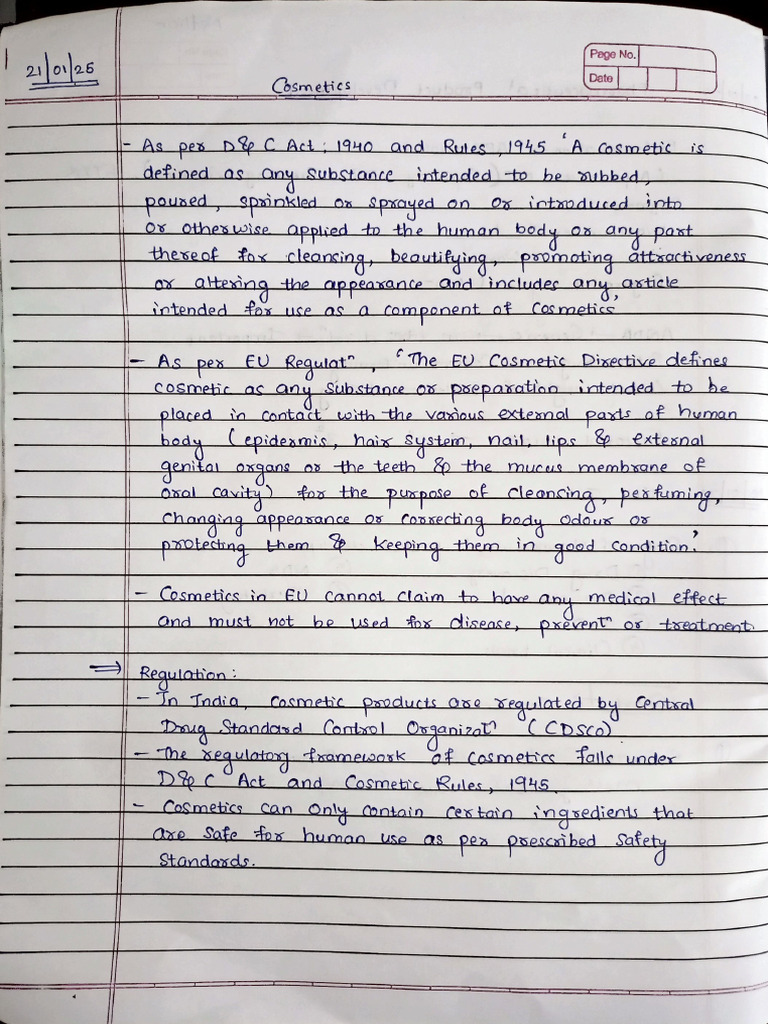 21/01/25
Page No.
Date
Cosmetics
- As per D&C Act; 1940 and Rules, 1945 'A cosmetic is
defined as any substance intended to be rubbed,
poured, sprinkled or sprayed on or introduced into
or otherwise applied to the human body or any part
thereof for cleansing, beautifying, promoting attractiveness
or altering the appearance and includes any article
intended for use as a component of cosmetics'
- As per EU Regulatⁿ, 'The EU Cosmetic Directive defines
cosmetic as any substance or preparation intended to be
placed in contact with the various external parts of human
body (epidermis, hair system, nail, lips & external
genital organs or the teeth & the mucus membrane of
oral cavity) for the purpose of cleansing, perfuming,
changing appearance or correcting body odour or
protecting them & keeping them in good condition.'
- Cosmetics in EU cannot claim to have any medical effect
and must not be used for disease, preventⁿ or treatment.
⇒ Regulation:
- In India, cosmetic products are regulated by Central
Drug Standard Control Organizatⁿ (CDSCO)
- The regulatory framework of cosmetics falls under
D&C Act and Cosmetic Rules, 1945.
- Cosmetics can only contain certain ingredients that
are safe for human use as per prescribed safety
standards.